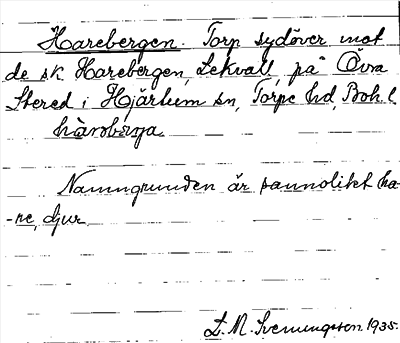 Harebergen. Torp sydöver mot
de sk. Harebergen, Lekvall, på Övra
Stered i Hjärtum sn, Torpe hd, Boh. l.
hàrəbærja.
Namngrunden är sannolikt ha-
-re, djur.
L. M. Svenungsson. 1935.